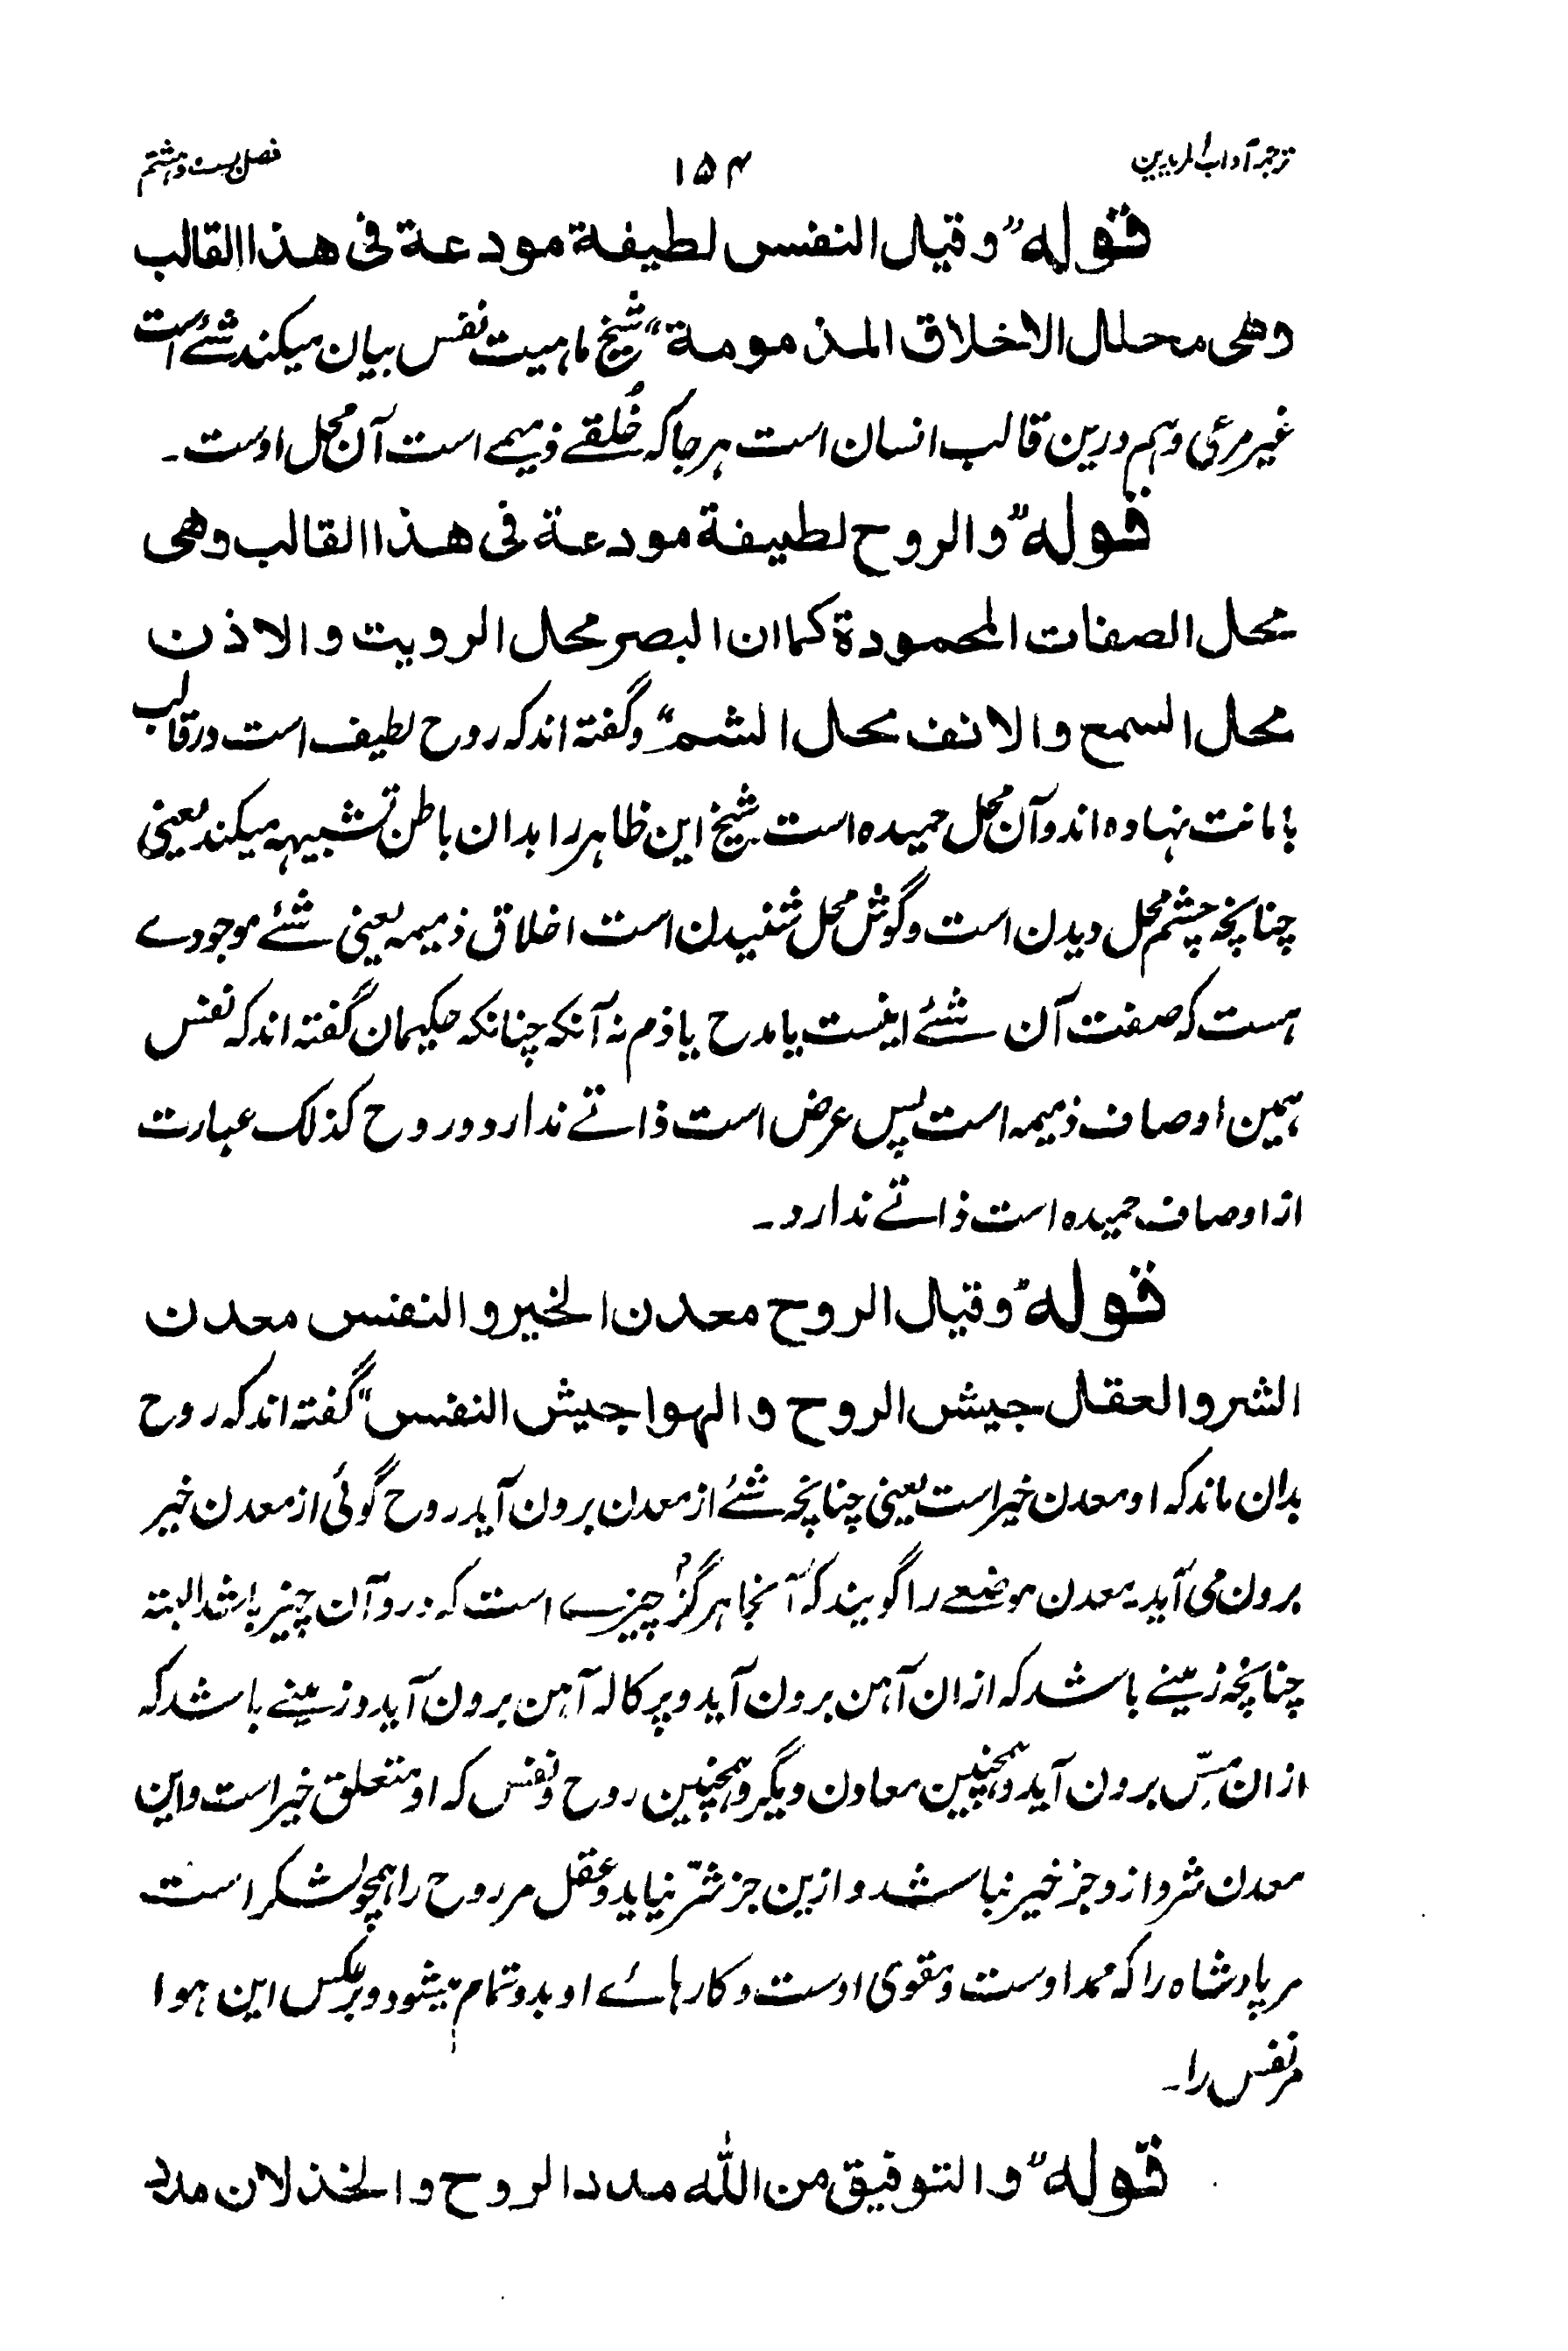 ترجمہ آداب المریدین ۱۵۴ فصل بست و ہشتم
قوله "وقيل النفس لطيفة مودعة فی هذا القالب
وهی محلل الاخلاق المذمومة" شیخ ماہیت نفس بیان میکند شئے است
غیر مرئی و ہم درین قالب انسان است ہر جا کہ خُلقے ذمیمے است آن محل اوست۔
قوله "والروح لطيفة مودعة فی هذا القالب وهی
محل الصفات المحمودة كما ان البصر محل الرويت والاذن
محل السمع والانف محل الشم" و گفتہ اند کہ روح لطیف است در قالب
بامانت نہادہ اند و آن محل حمیدہ است شیخ این ظاہر را بدان باطن تشبیہہ میکند یعنی
چنانچہ چشم محل دیدن است و گوش محل شنیدن است اخلاق ذمیمہ یعنی شئے موجودے
ہست کہ صفت آن شئے اینست یا مدح یا ذم نہ آنکہ چنانکہ حکیمان گفتہ اند کہ نفس
ہمین اوصاف ذمیمہ است پس عرض است ذاتے ندارد و روح کذلک عبارت
از اوصاف حمیدہ است ذاتے ندارد۔
قوله "وقيل الروح معدن الخير والنفس معدن
الشر والعقل جيش الروح والهوا جيش النفس" گفتہ اند کہ روح
بدان ماند کہ او معدن خیر است یعنی چنانچہ شئے از معدن برون آید روح گوئی از معدن خیر
برون می آید۔ معدن موضعے را گویند کہ آنجا ہرگز چیزے است کہ درو آن چیز باشد البتہ
چنانچہ زمینے باشد کہ ازان آہن برون آید و پرکالہ آہن برون آید و زمینے باشد کہ
ازان مِسّ برون آید و ہمچنین معادن دیگر و ہمچنین روح و نفس کہ او متعلق خیر است و این
معدن شر و ازو جز خیر نباشد و ازین جز شرّ نیاید و عقل مر روح را ہمچو لشکر است
مر پادشاہ را کہ ممد اوست و مقوی اوست و کارہائے او بدو تمام میشود و برعکس این ہوا
مر نفس را۔
قوله "والتوفيق من الله مدد الروح والخذلان مدد